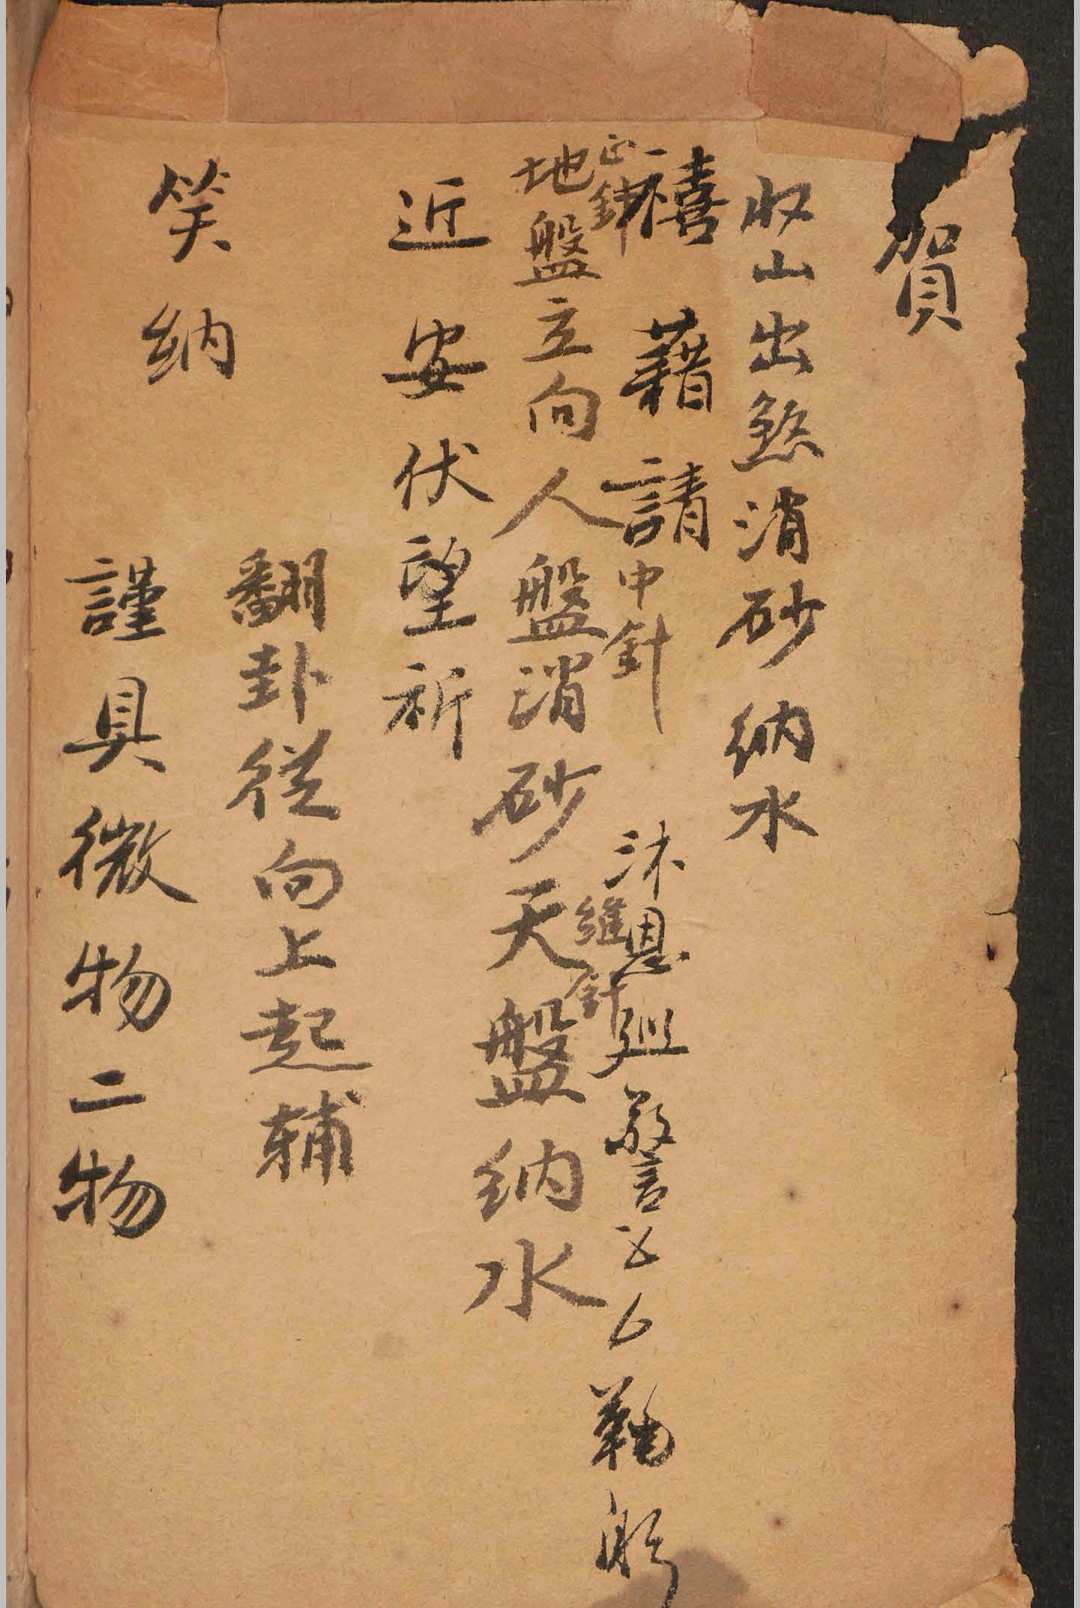 賀
收山出煞消砂納水
禧 藉請中針
沐恩 警 鞠躬
正針 維針
地盤立向人盤消砂天盤納水
近安伏望祈
翻卦從向上起輔
笑納
謹具微物二物